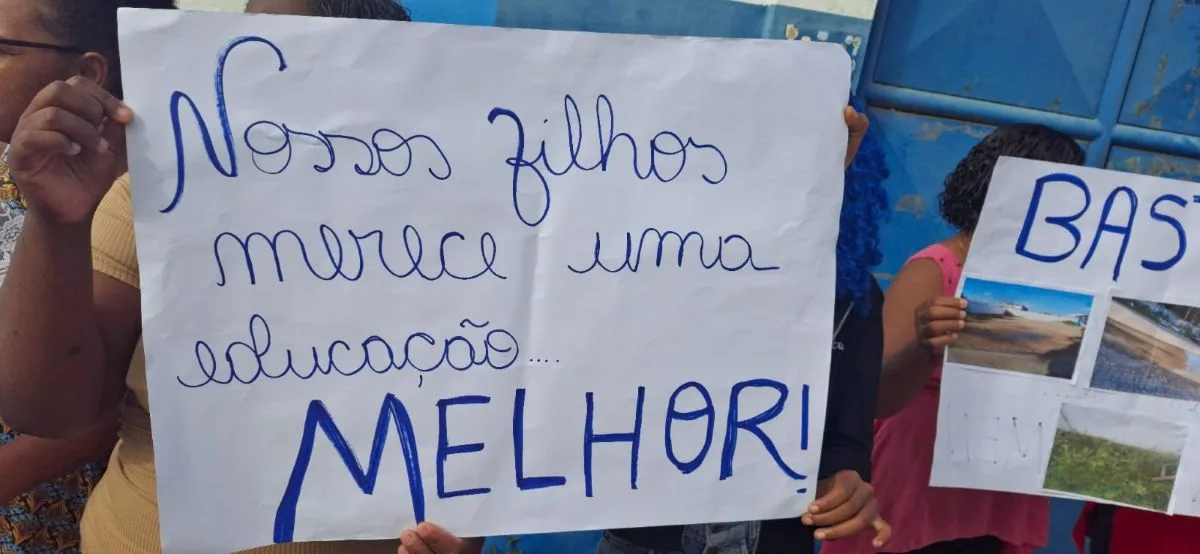 Nossos filhos
merece uma
educação....
MELHOR!
BAS